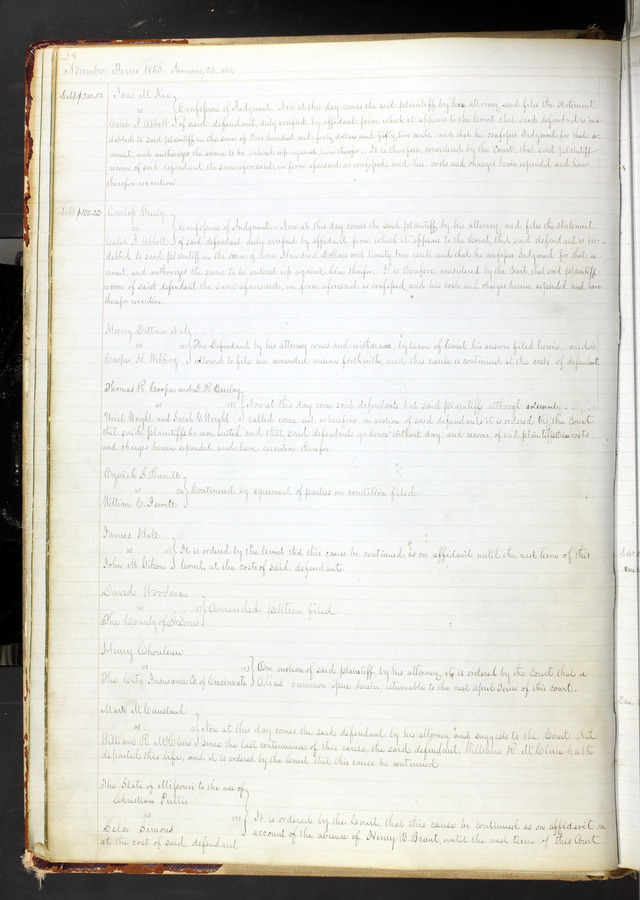 28
November Term 1853 January, 23. 1854
Debt $140.52 Jane M Key
vs Confession of Judgment. Now at this day comes the said plaintiff by her attorney and files the statement
Caleb J. Abbott of said defendant duly verified by affidavit from which it appears to the Court that said defendant is in-
debted to said plaintiff in the sum of One hundred and forty dollars and fifty two cents, and that he confesses Judgment for that a-
mount, and authorizes the same to be entered up against him therefor. It is therefore considered by the Court, that said plaintiff
recover of said defendant, the sum aforesaid, in form aforesaid so confessed, and her costs and charges herein expended and have
therefor execution.
Debt $100.22
vs Confession of Judgment - Now at this day comes the said plaintiff, by his attorney, and files the statement
Caleb J. Abbott of said defendant duly verified by affidavit, from which it appears to the Court, that said defendant is in-
debted to said plaintiff in the sum of One Hundred Dollars and twenty two cents and that he confesses Judgment for that a-
mount, and authorizes the same to be entered up against him therefor. It is therefore considered by the Court, that said plaintiff
recover of said defendant the sum aforesaid, in form aforesaid so confessed and his costs and charges herein expended and have
therefor execution.
Henry Dittmer et al
vs The Defendant by his attorney comes and withdraws, by leave of Court his answer filed herein, and is
Casper H. Wibbing allowed to file an amended answer forthwith, and this cause is continued at the costs of defendant
Thomas R. Cooper and D. R. Barclay
vs Now at this day come said defendants but said plaintiffs although solemnly
Uriel Wright and Sarah C. Wright called come not, wherefore on motion of said defendants it is ordered by the Court
that said plaintiffs be non suited, and that said defendants go hence without day, and recover of said plaintiffs their costs
and charges herein expended, and have execution therefor.
Burnett
vs Continued by agreement of parties on condition filed.
William C. Jewett
James Hall
vs It is ordered by the Court that this cause be continued as on affidavit until the next term of this
John M. Gibson Court, at the costs of said defendant
David Woodman
vs Amended petition filed
The County of St Louis
Henry Chouteau
vs 173 On motion of said plaintiff by his attorney, it is ordered by the Court, that a
The City Insurance Co. of Cincinnati Alias summon issue herein, returnable to the next April Term of this court.
Mark M. Causland
vs Now at this day comes the said defendant, by his attorney and suggests to the Court that
William R. McClure since the last continuance of this cause, the said defendant, William R. McClure hath
departed this life, and it is ordered by the Court that this cause be continued
The State of Missouri to the use of
Christian Pullis
vs It is ordered by the Court, that this cause be continued as on affidavit on
Simons account of the absence of Henry B. Brant, until the next term of this Court
at the cost of said defendant